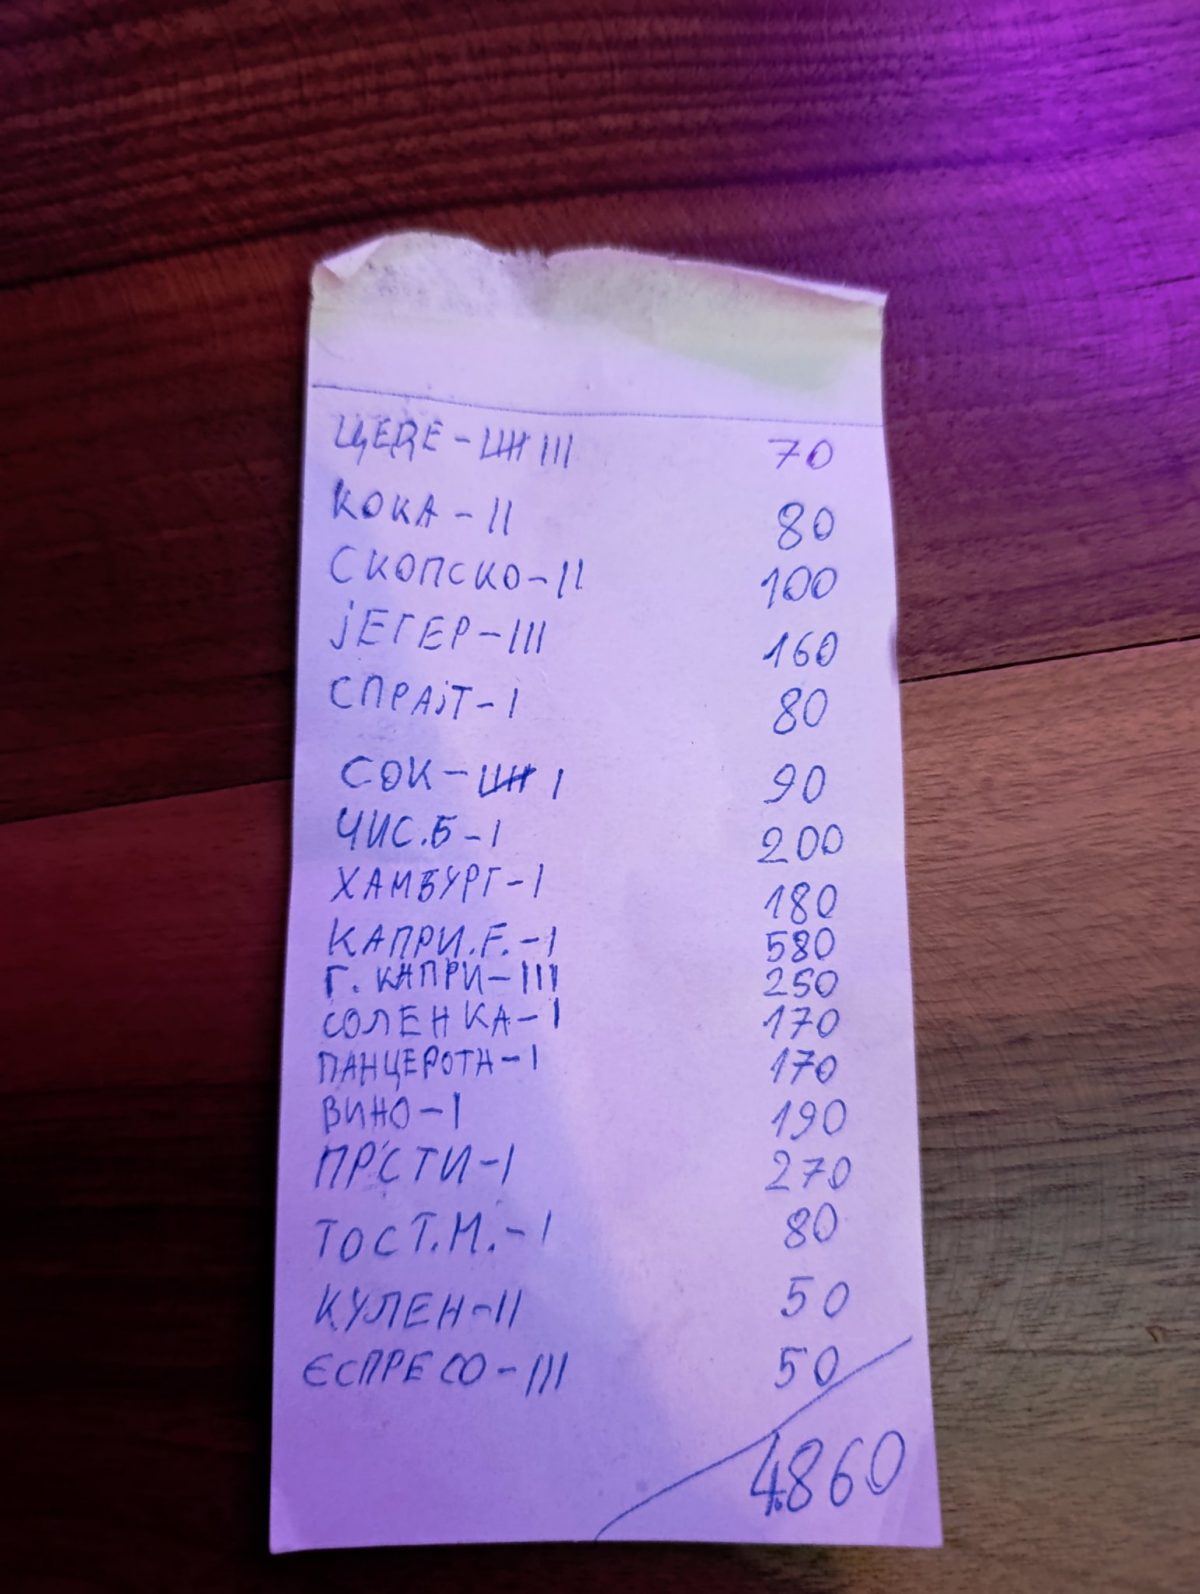 ЦЕДЕ - 卌 III 70
КОКА - II 80
СКОПСКО - II 100
ЈЕГЕР - III 160
СПРАЈТ - I 80
СОК - 卌 I 90
ЧИС.Б - I 200
ХАМБУРГ - I 180
КАПРИ.F. - I 580
Г. КАПРИ - III 250
СОЛЕНКА - I 170
ПАНЦЕРОТИ - I 170
ВИНО - I 190
ПРСТИ - I 270
ТОСТ.М. - I 80
КУЛЕН - II 50
ЕСПРЕСО - III 50
4860